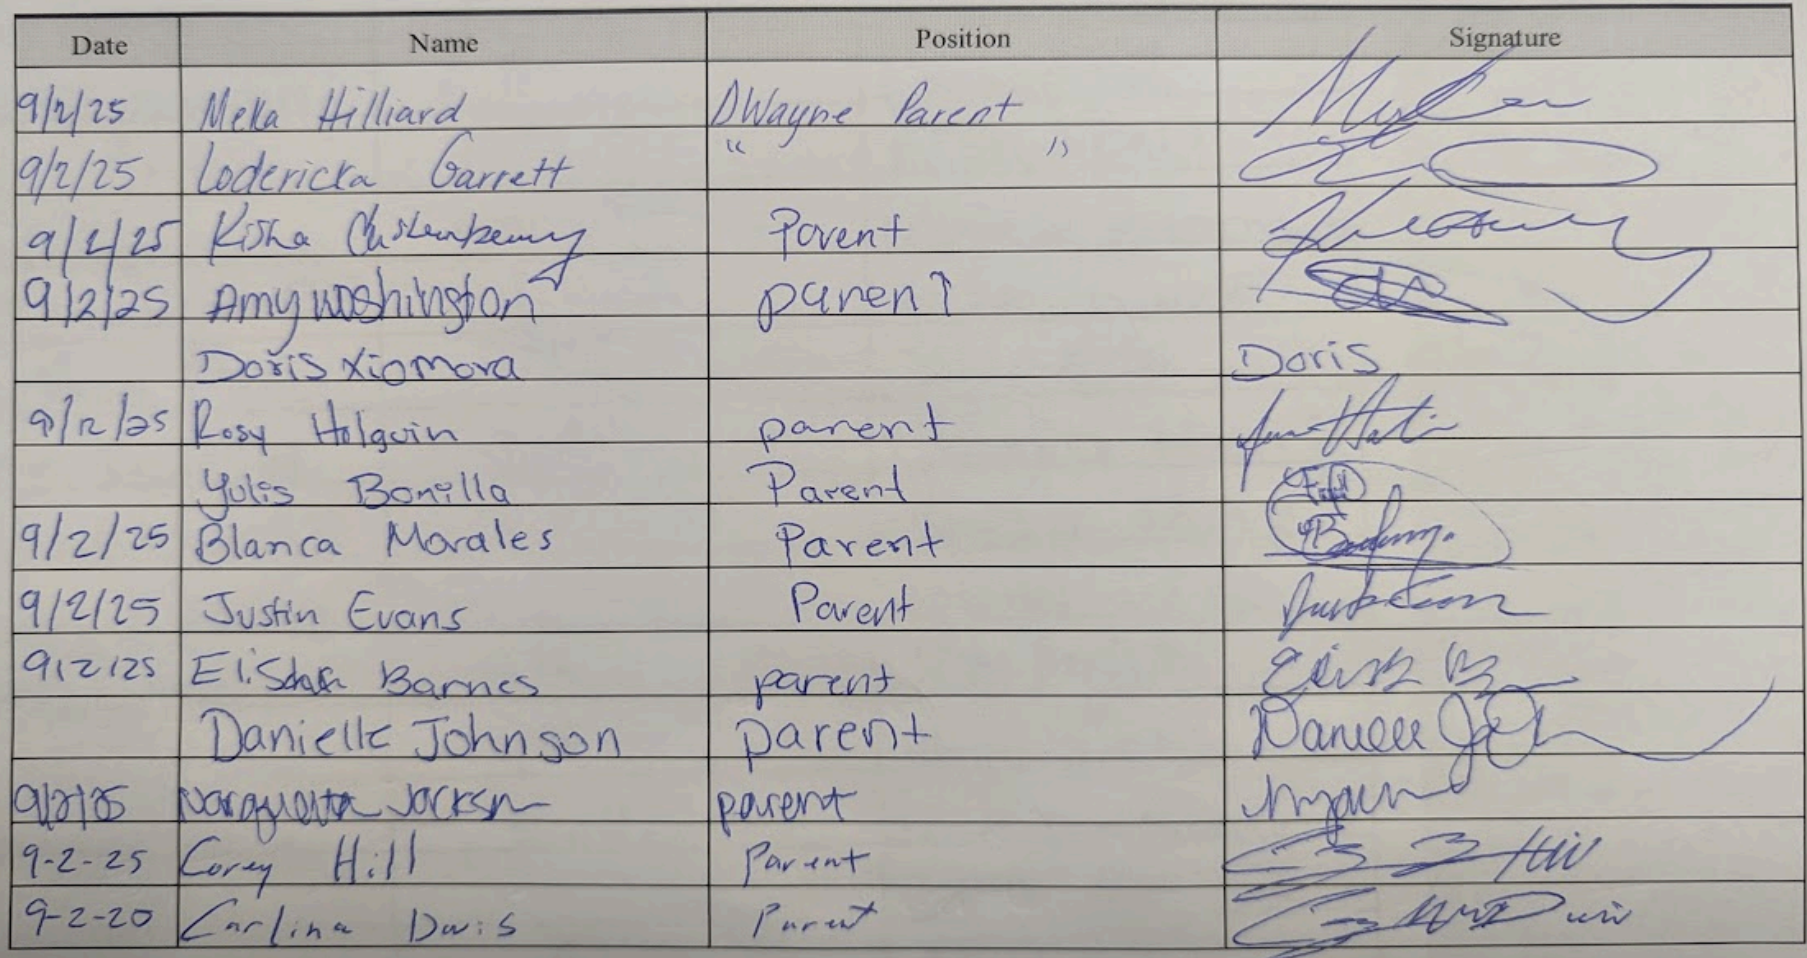 Date Name Position Signature
9/2/25 Meka Hilliard DWayne Parent
9/2/25 Lodericka Garrett " "
9/2/25 Kisha Parent
9/2/25 Amy Washington parent
Doris Xiomara Doris
9/2/25 Rosy Holguin parent
Yulis Bonilla Parent
9/2/25 Blanca Morales Parent
9/2/25 Justin Evans Parent
9/2/25 Elisha Barnes parent
Danielle Johnson parent Danielle
9/2/25 Jackson parent
9-2-25 Corey Hill Parent Hill
9-2-20 Carlina Davis Parent Davis